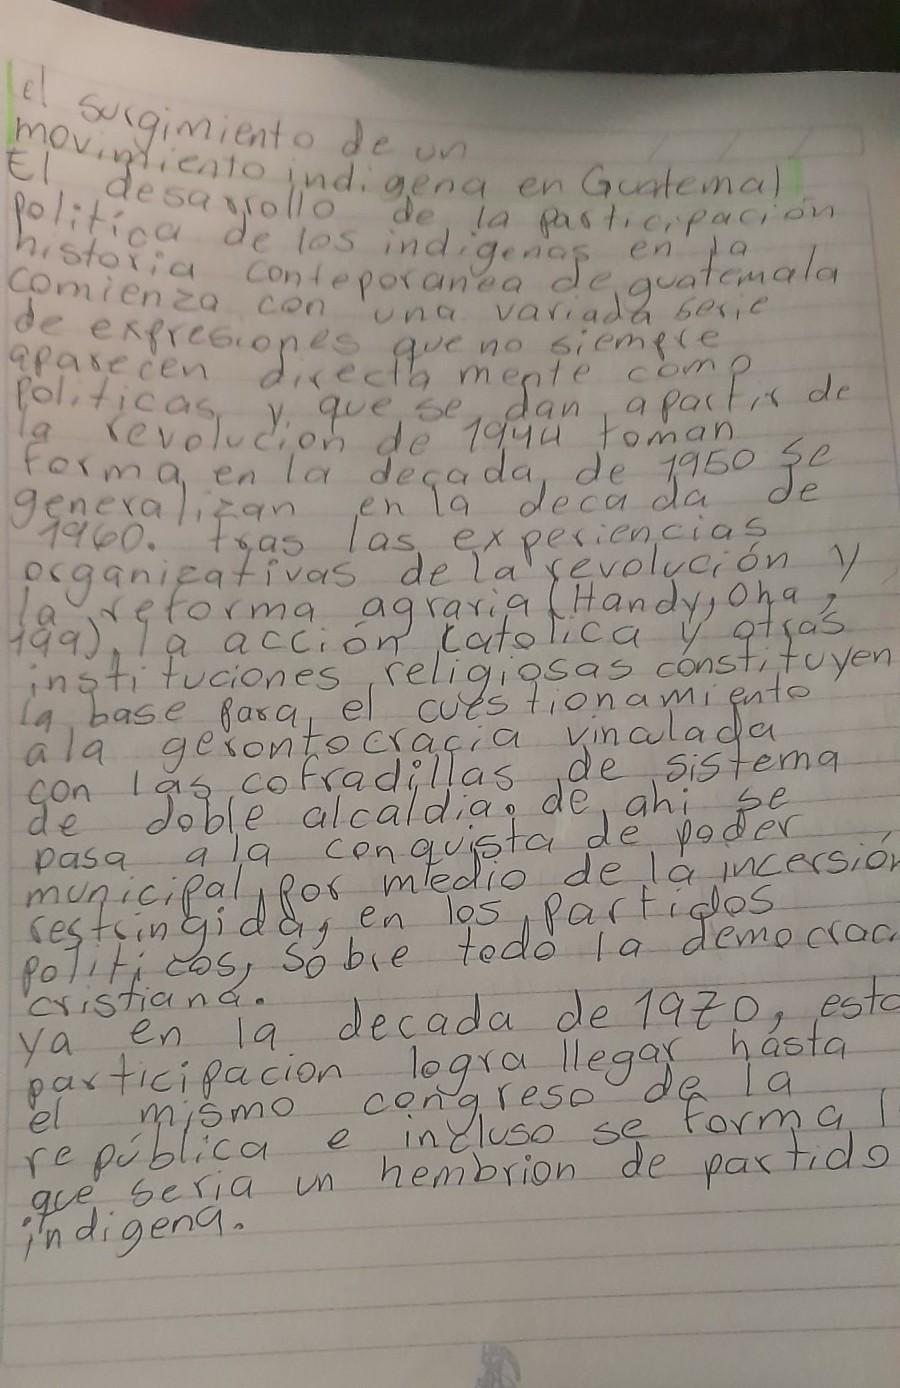 el surgimiento de un
movimiento indigena en Guatemal
El desarrollo de la participación
política de los indigenas en la
historia conteporanea de guatemala
comienza con una variada serie
de expresiones que no siempre
aparecen directa mente como
politicas, y que se dan apartir de
la revolución de 1944 toman
forma en la decada de 1950 se
generalizan en la decada de
1960. tras las experiencias
organizativas de la revolución y
la reforma agraria (Handy, Oha,
199), la acción catolica y otras
instituciones religiosas constituyen
la base para el cuestionamiento
ala gerontocracia vinculada
con las cofradillas de sistema
de doble alcaldia. de ahi se
pasa a la conquista de poder
municipal por medio de la incersión
restringida, en los partidos
politicos, sobre todo la democrac
cristiana.
ya en la decada de 1970, esta
participacion logra llegar hasta
el mismo congreso de la
república e incluso se forma l
que seria un hembrion de partido
indigena.